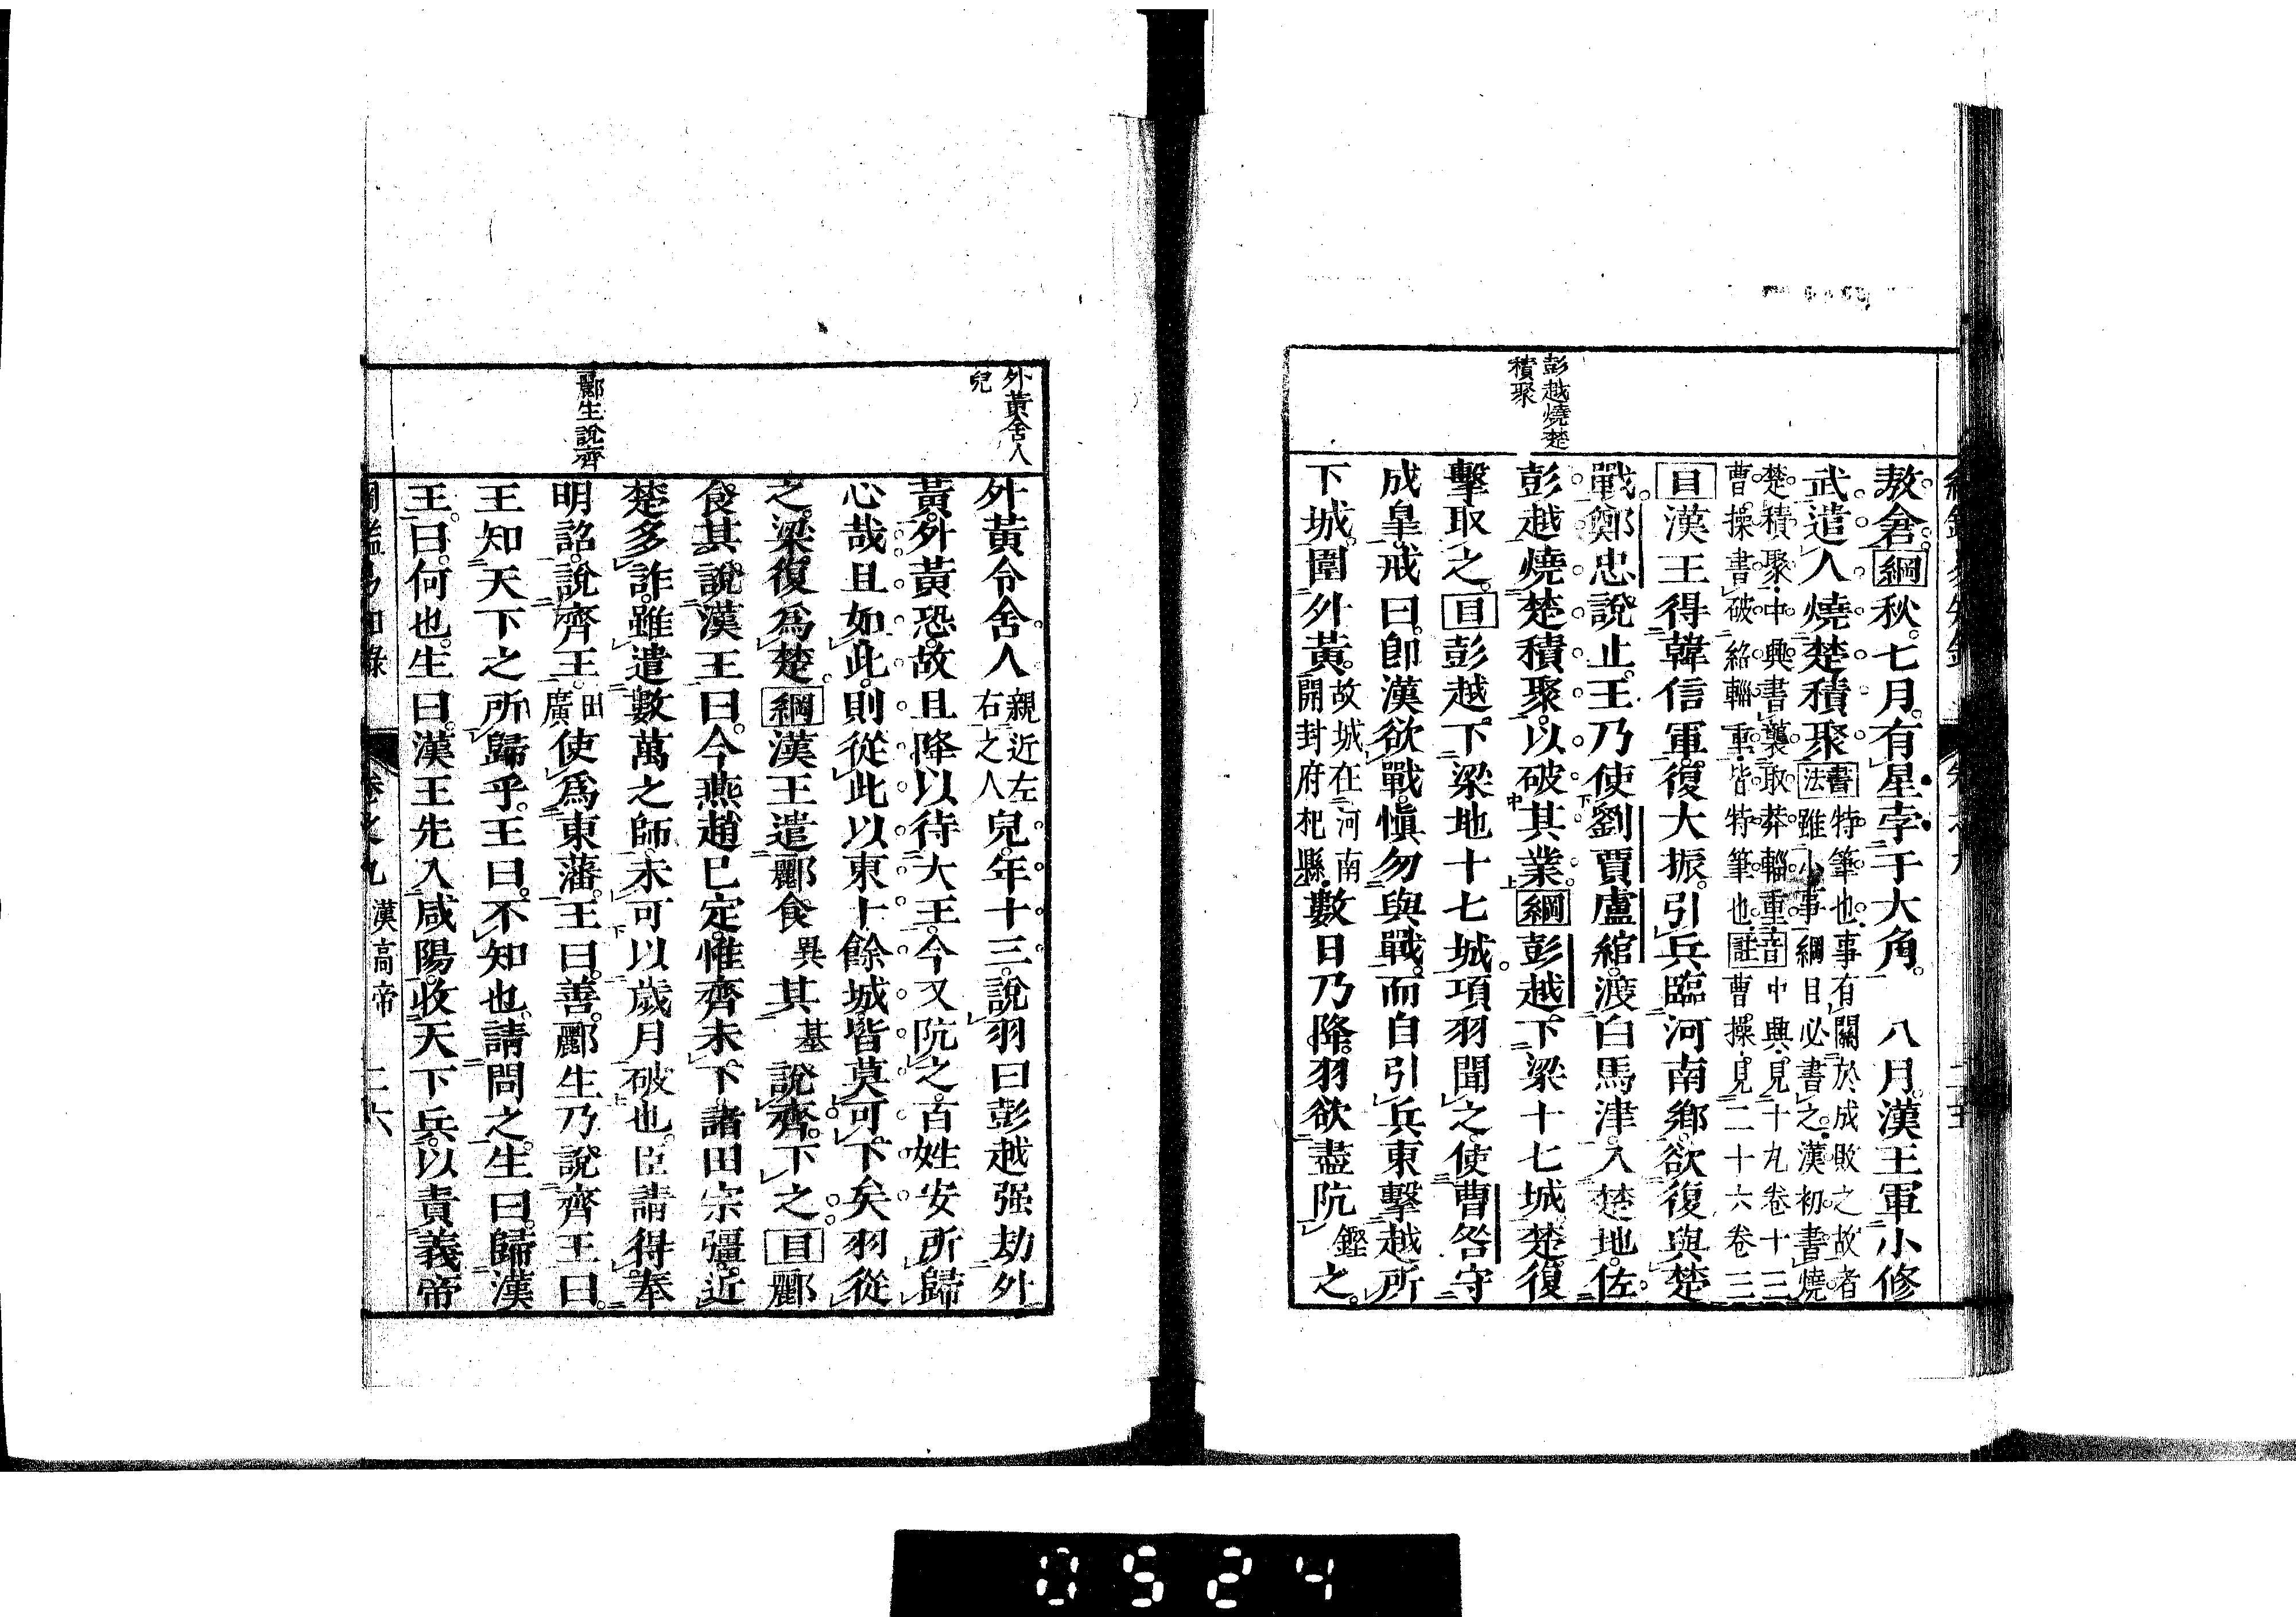 彭越燒楚
積聚
敖倉。綱秋。七月。有星孛于大角。 八月。漢王軍小修
武遣人燒楚積聚書法特筆也。事有關於成敗之故者雖小事綱目必書之。漢初。書燒
楚積聚。中興書襲取莽輜重音中興。見十九卷十三
曹操書破紹輜重。皆特筆也。註曹操。見二十六卷三
目漢王得韓信軍。復大振。引兵臨河南鄉。欲復與楚
戰。鄭忠說止。王乃使劉賈盧綰。渡白馬津。入楚地。佐
彭越燒楚積聚。以破其業。綱彭越。下梁十七城。楚復
擊取之。目彭越。下梁地十七城。項羽聞之。使曹咎守
成皐。戒曰。卽漢欲戰。愼勿與戰。而自引兵東擊越所
下城。圍外黃。故城在河南開封府杞縣。數日乃降。羽欲盡阬鏗之。
外黃舍人
兒
外黃令舍人親近左右之人兒。年十三。說羽曰彭越强劫外
黃。外黃恐。故且降以待大王。今又阬之。百姓安所歸
心哉且如此。則從此以東十餘城。皆莫可下矣。羽從
之。梁復爲楚。綱漢王遣酈食異其基說齊。下之。目酈
食其。說漢王曰。今燕趙已定。惟齊未下。諸田宗彊。近
楚多詐。雖遣數萬之師。未可以歲月破也。臣請得奉
酈生說齊
明詔。說齊王。田廣使爲東藩。王曰。善。酈生乃說齊王曰。
王知天下之所歸乎。王曰。不知也。請問之。生曰。歸漢
王。曰。何也。生曰。漢王先入咸陽。收天下兵。以責義帝
卷之九 漢高帝 二六
0524